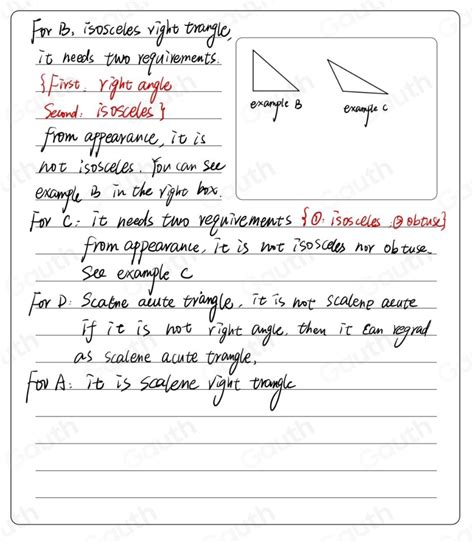 For B, isosceles right trangle,
it needs two requirements.
{First. right angle
Second: isosceles}
from appearance, it is
not isosceles. You can see
example B in the right box.
example B
example C
For C: it needs two requirements {①. isosceles. ② obtuse}
from appearance, it is not isosceles nor obtuse.
See example C
For D: Scalene acute triangle, it is not scalene acute
if it is not right angle. then it can regrad
as scalene acute trangle,
For A: it is scalene right trangle
Gauth